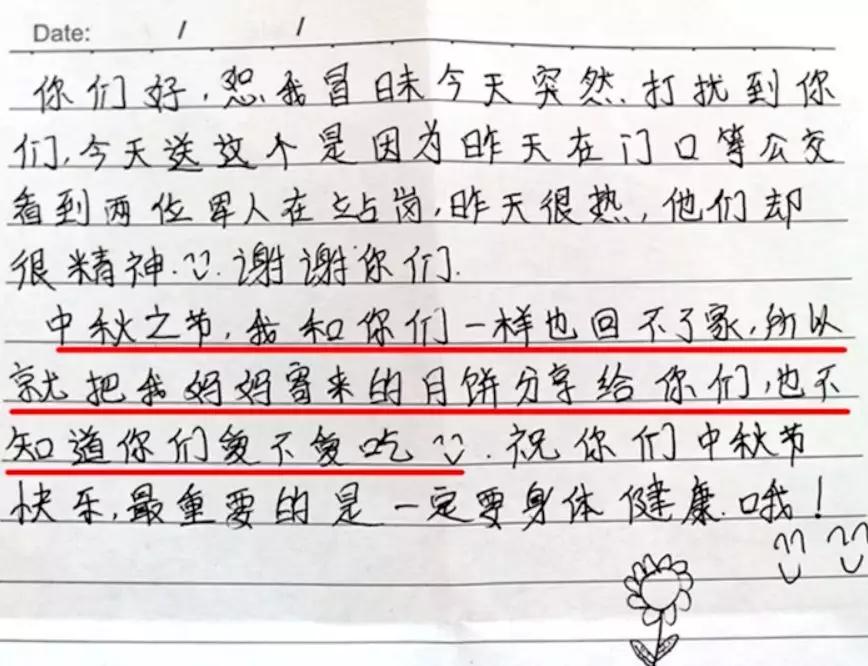 Date: / /
你们好，恕我冒昧今天突然打扰到你
们，今天送这个是因为昨天在门口等公交
看到两位军人在站岗，昨天很热，他们却
很精神。谢谢你们.
中秋之节，我和你们一样也回不了家，所以
就把我妈妈寄来的月饼分享给你们，也不
知道你们爱不爱吃 . 祝你们中秋节
快乐，最重要的是一定要身体健康哦！